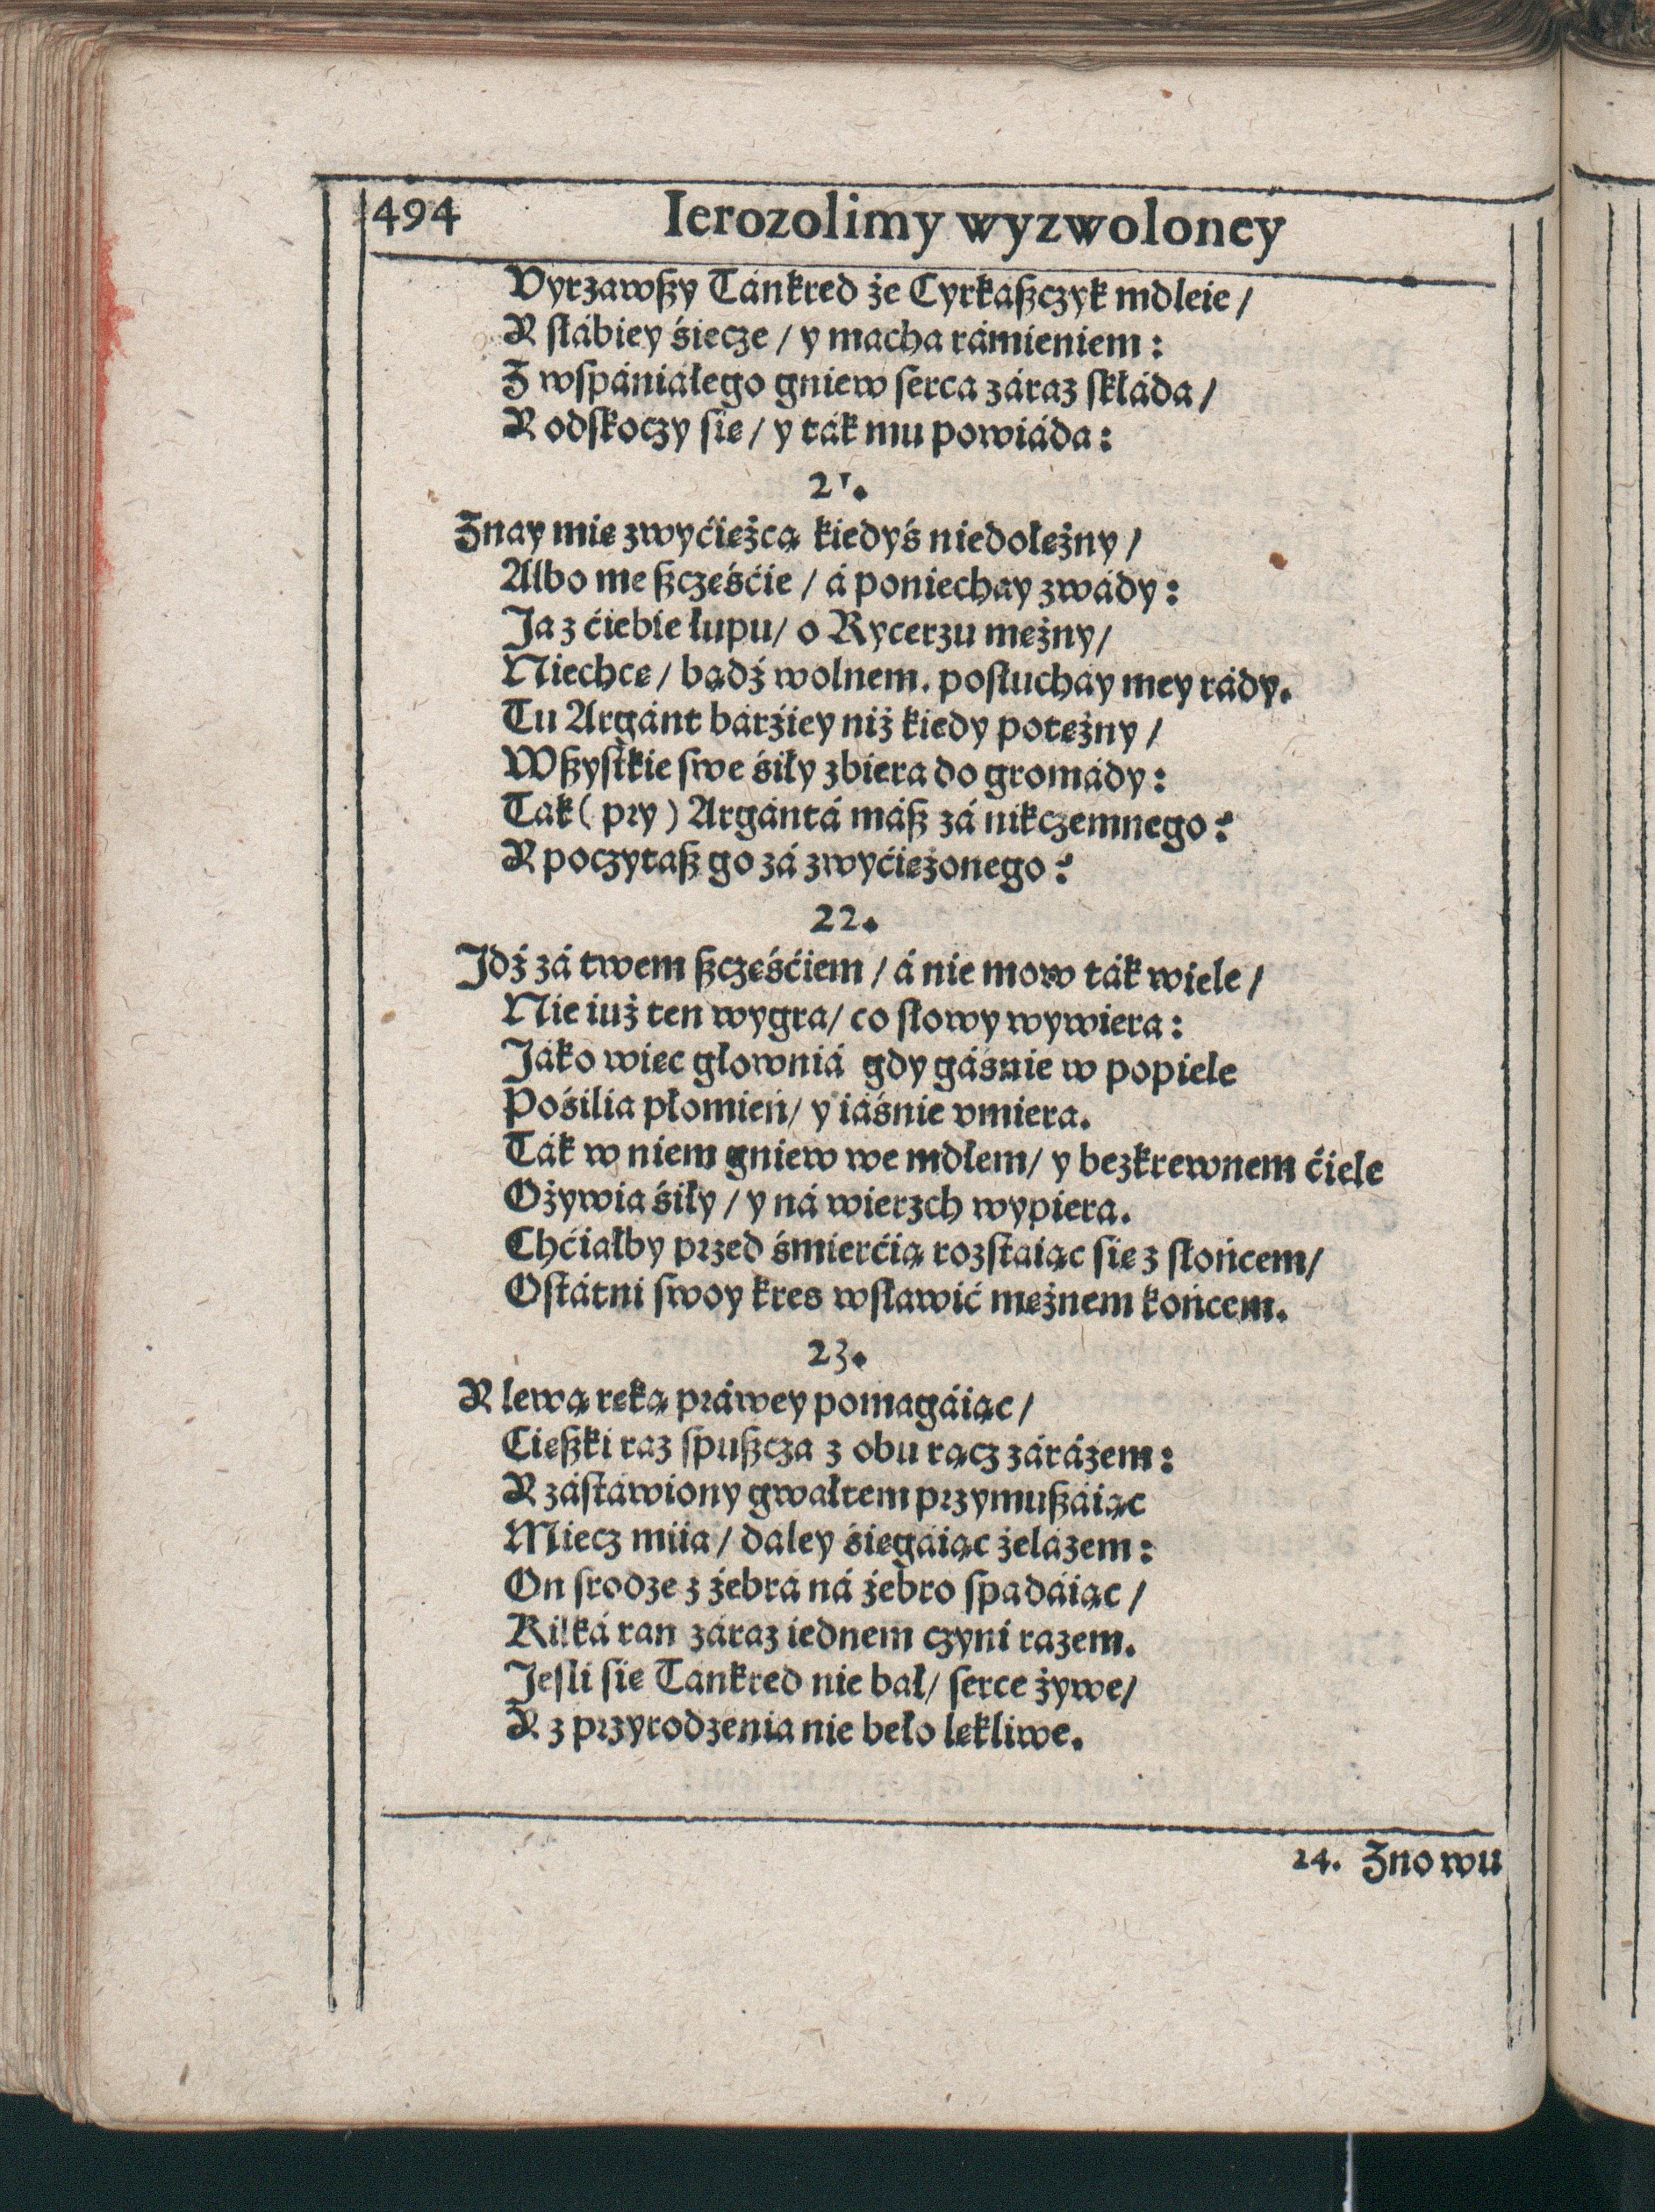 494 Ierozolimy wyzwoloney
Vyrzawszy Tánkred że Cyrkaszczyk mdleie /
Y słábiey śiecze / y macha rámieniem :
Z wspániałego gniew serca záraz składa /
Y odskoczy się / y ták mu powiáda :
21.
Znay mię zwyćiężcą kiedyś niedołężny /
Albo me szczęśćie / á poniechay zwády :
Ja z ćiebie łupu / o Rycerzu mężny /
Niechcę / bądź wolnem. posłuchay mey rády.
Tu Argánt bárźiey niż kiedy potężny /
Wszystkie swe śiły zbiera do gromády :
Tak ( pry ) Argántá mász zá nikczemnego ?
Y poczytasz go zá zwyćiężonego ?
22.
Jdź zá twem szczęśćiem / á nie mow ták wiele /
Nie iuż ten wygra / co słowy wywiera :
Jáko więc głowniá gdy gáśnie w popiele
Pośilia płomień / y iáśnie vmiera.
Ták w niem gniew we mdłem / y bezkrewnem ćiele
Ożywia śiły / y ná wierzch wypiera.
Chćiałby przed śmierćią rozstaiąc się z słońcem /
Ostátni swoy kres wsławić mężnem końcem.
23.
Y lewą ręką práwey pomagáiąc /
Cięszki raz spuszcza z obu rącz zárázem :
Y zástáwiony gwałtem przymuszáiąc
Miecz miia / daley śięgáiąc żelázem :
On srodze z żebrá ná żebro spadáiąc /
Kilká ran záraz iednem czyni razem.
Jesli się Tánkred nie bał / serce żywe /
Y z przyrodzenia nie beło lękliwe.
24. Znowu